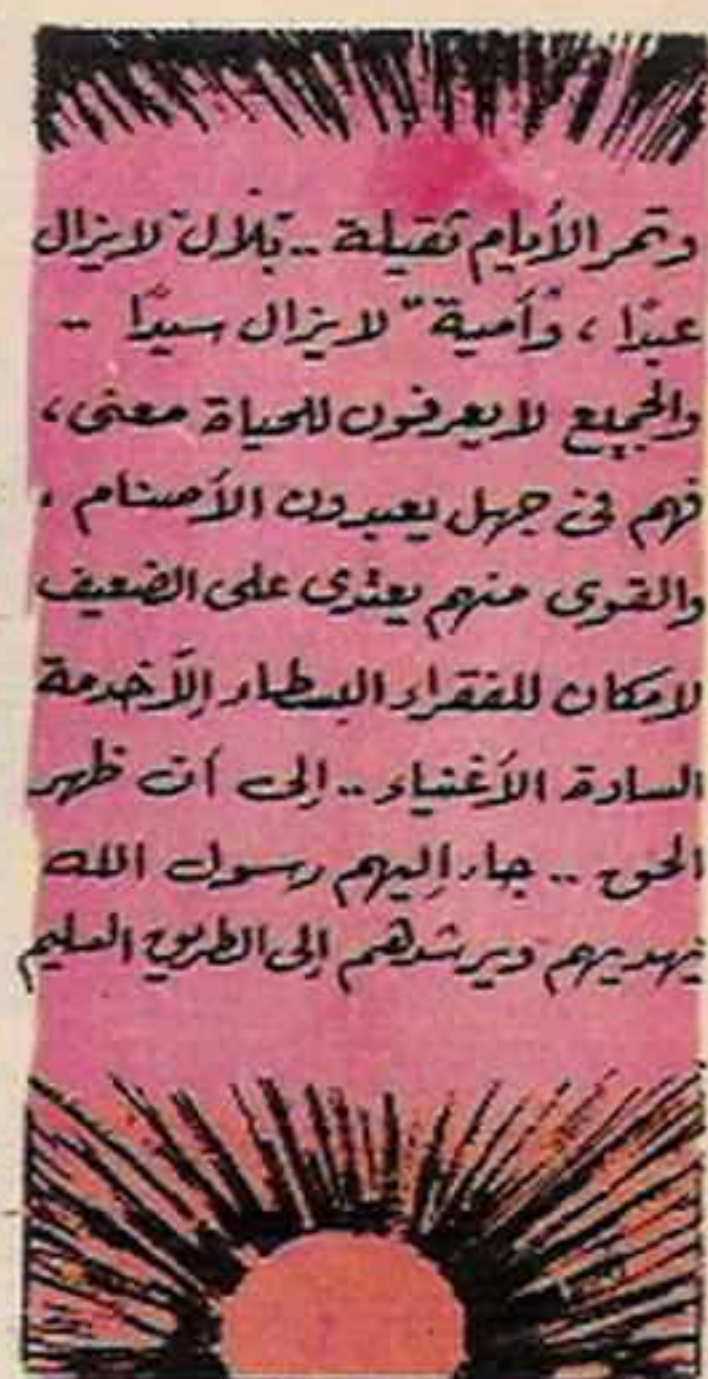 وتمر الأيام ثقيلة .. "بلال" لا يزال
عبدًا ، و"أمية" لا يزال سيدًا ..
والجميع لا يعرفون للحياة معنى ،
فهم فى جهل يعبدون الأصنام ،
والقوى منهم يعتدى على الضعيف
لا مكان للفقراء البسطاء إلّا خدمة
السادة الأغنياء .. إلى أن ظهر
الحق .. جاء إليهم رسول الله
يهديهم ويرشدهم إلى الطريق السليم